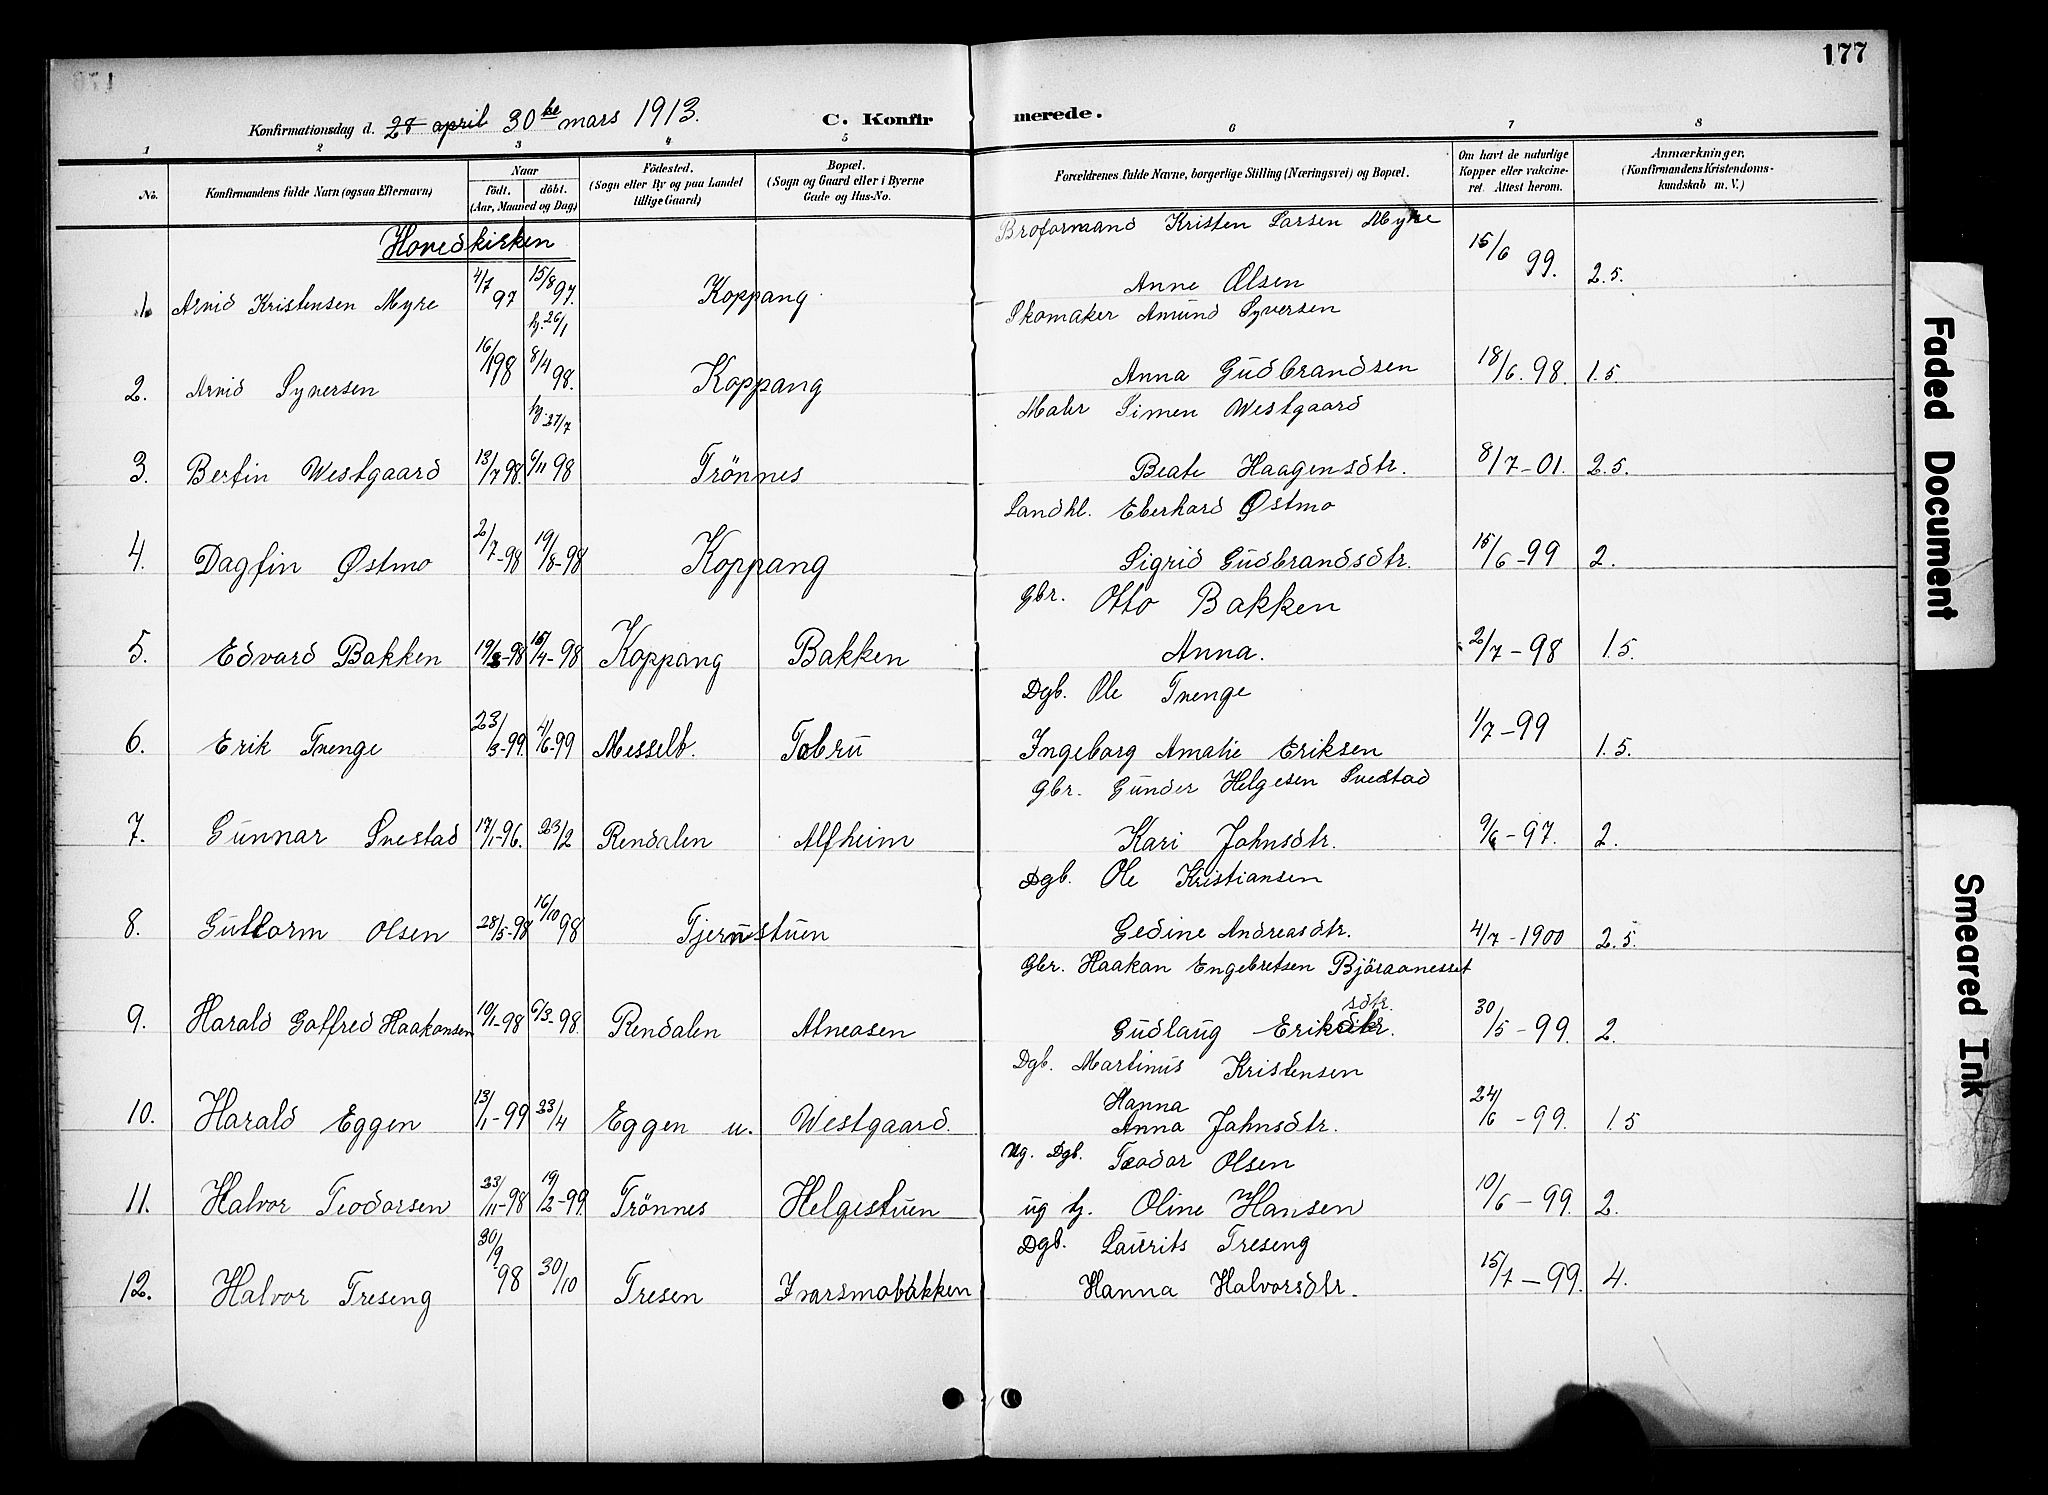 177
Konfirmationsdag d. 28 april 30te mars 1913. C. Konfirmerede.
1 2 3 4 5 6 7 8
No. Konfirmandens fulde Navn (ogsaa Efternavn) Naar født, døbt. (Aar, Maaned og Dag) Fødested. (Sogn eller By og paa Landet tillige Gaard) Bopæl. (Sogn og Gaard eller i Byerne Gade og Hus-No. Forældrenes fulde Navne, borgerlige Stilling (Næringsvei) og Bopæl. Om havt de naturlige Kopper eller vakcineret. Attest herom. Anmærkninger, (Konfirmandens Kristendomskundskab m. V.)
Hovedkirken
Broformand Kristen Larsen Myre
1. Arvid Kristensen Myre 4/7 97 15/8 97. Koppang Anne Olsen 15/6 99. 2.5.
hj. 26/1 Skomaker Amund Syversen
2. Arvid Syversen 16/1 98 8/4 98. Koppang Anna Gudbrandsen 18/6. 98. 1.5.
hj. 27/7 Maler Simen Westgaard
3. Bertin Westgaard 13/7 98. 6/11 98 Trönnes Beate Haagensdtr. 8/7-01. 2.5.
Landhl. Eberhard Østmo
4. Dagfin Østmo 2/7-98 19/8-98 Koppang Sigrid Gudbrandsdtr. 15/6-99 2.
Gbr. Otto Bakken
5. Edvard Bakken 19/3-98 /4-98 Koppang Bakken Anna. 2/7-98 1.5.
Dgb. Ole Trenge
6. Erik Trenge 23/3-99. 4/6-99 Messelb. Tobru Ingeborg Amalie Eriksen 1/7-99 1.5.
Gbr. Gunder Helgesen Svestad
7. Gunnar Svestad 17/1-96. 23/2 Rendalen Alfheim Kari Johnsdtr. 9/6-97. 2.
Dgb. Ole Kristiansen
8. Guttorm Olsen 28/5-98 16/10 98 Tjernstuen Gedine Andreasdtr. 4/7-1900 2.5.
Gbr. Haakan Engebretsen Björaanesset
9. Harald Gotfred Haakonsen 10/1-98 6/3-98. Rendalen Atneosen Gudlaug Eriksdtr. sdtr. 30/5-99. 2.
Dgb. Martinus Kristensen
10. Harald Eggen 13/1-99 23/4 Eggen u. Westgaard. Hanna Anna Johnsdtr. 24/6-99. 1.5
Ug. Dgb. Teodor Olsen
11. Halvor Teodorsen 23/11-98 19/2-99. Trönnes Helgestuen ug tj. Oline Hansen 10/6-99. 2.
Dgb. Laurits Treseng
12. Halvor Treseng 30/9 98 30/10 Tresen Ivarsmobakken Hanna Halvorsdtr. 15/7-99. 4.
Faded Document
Smeared Ink